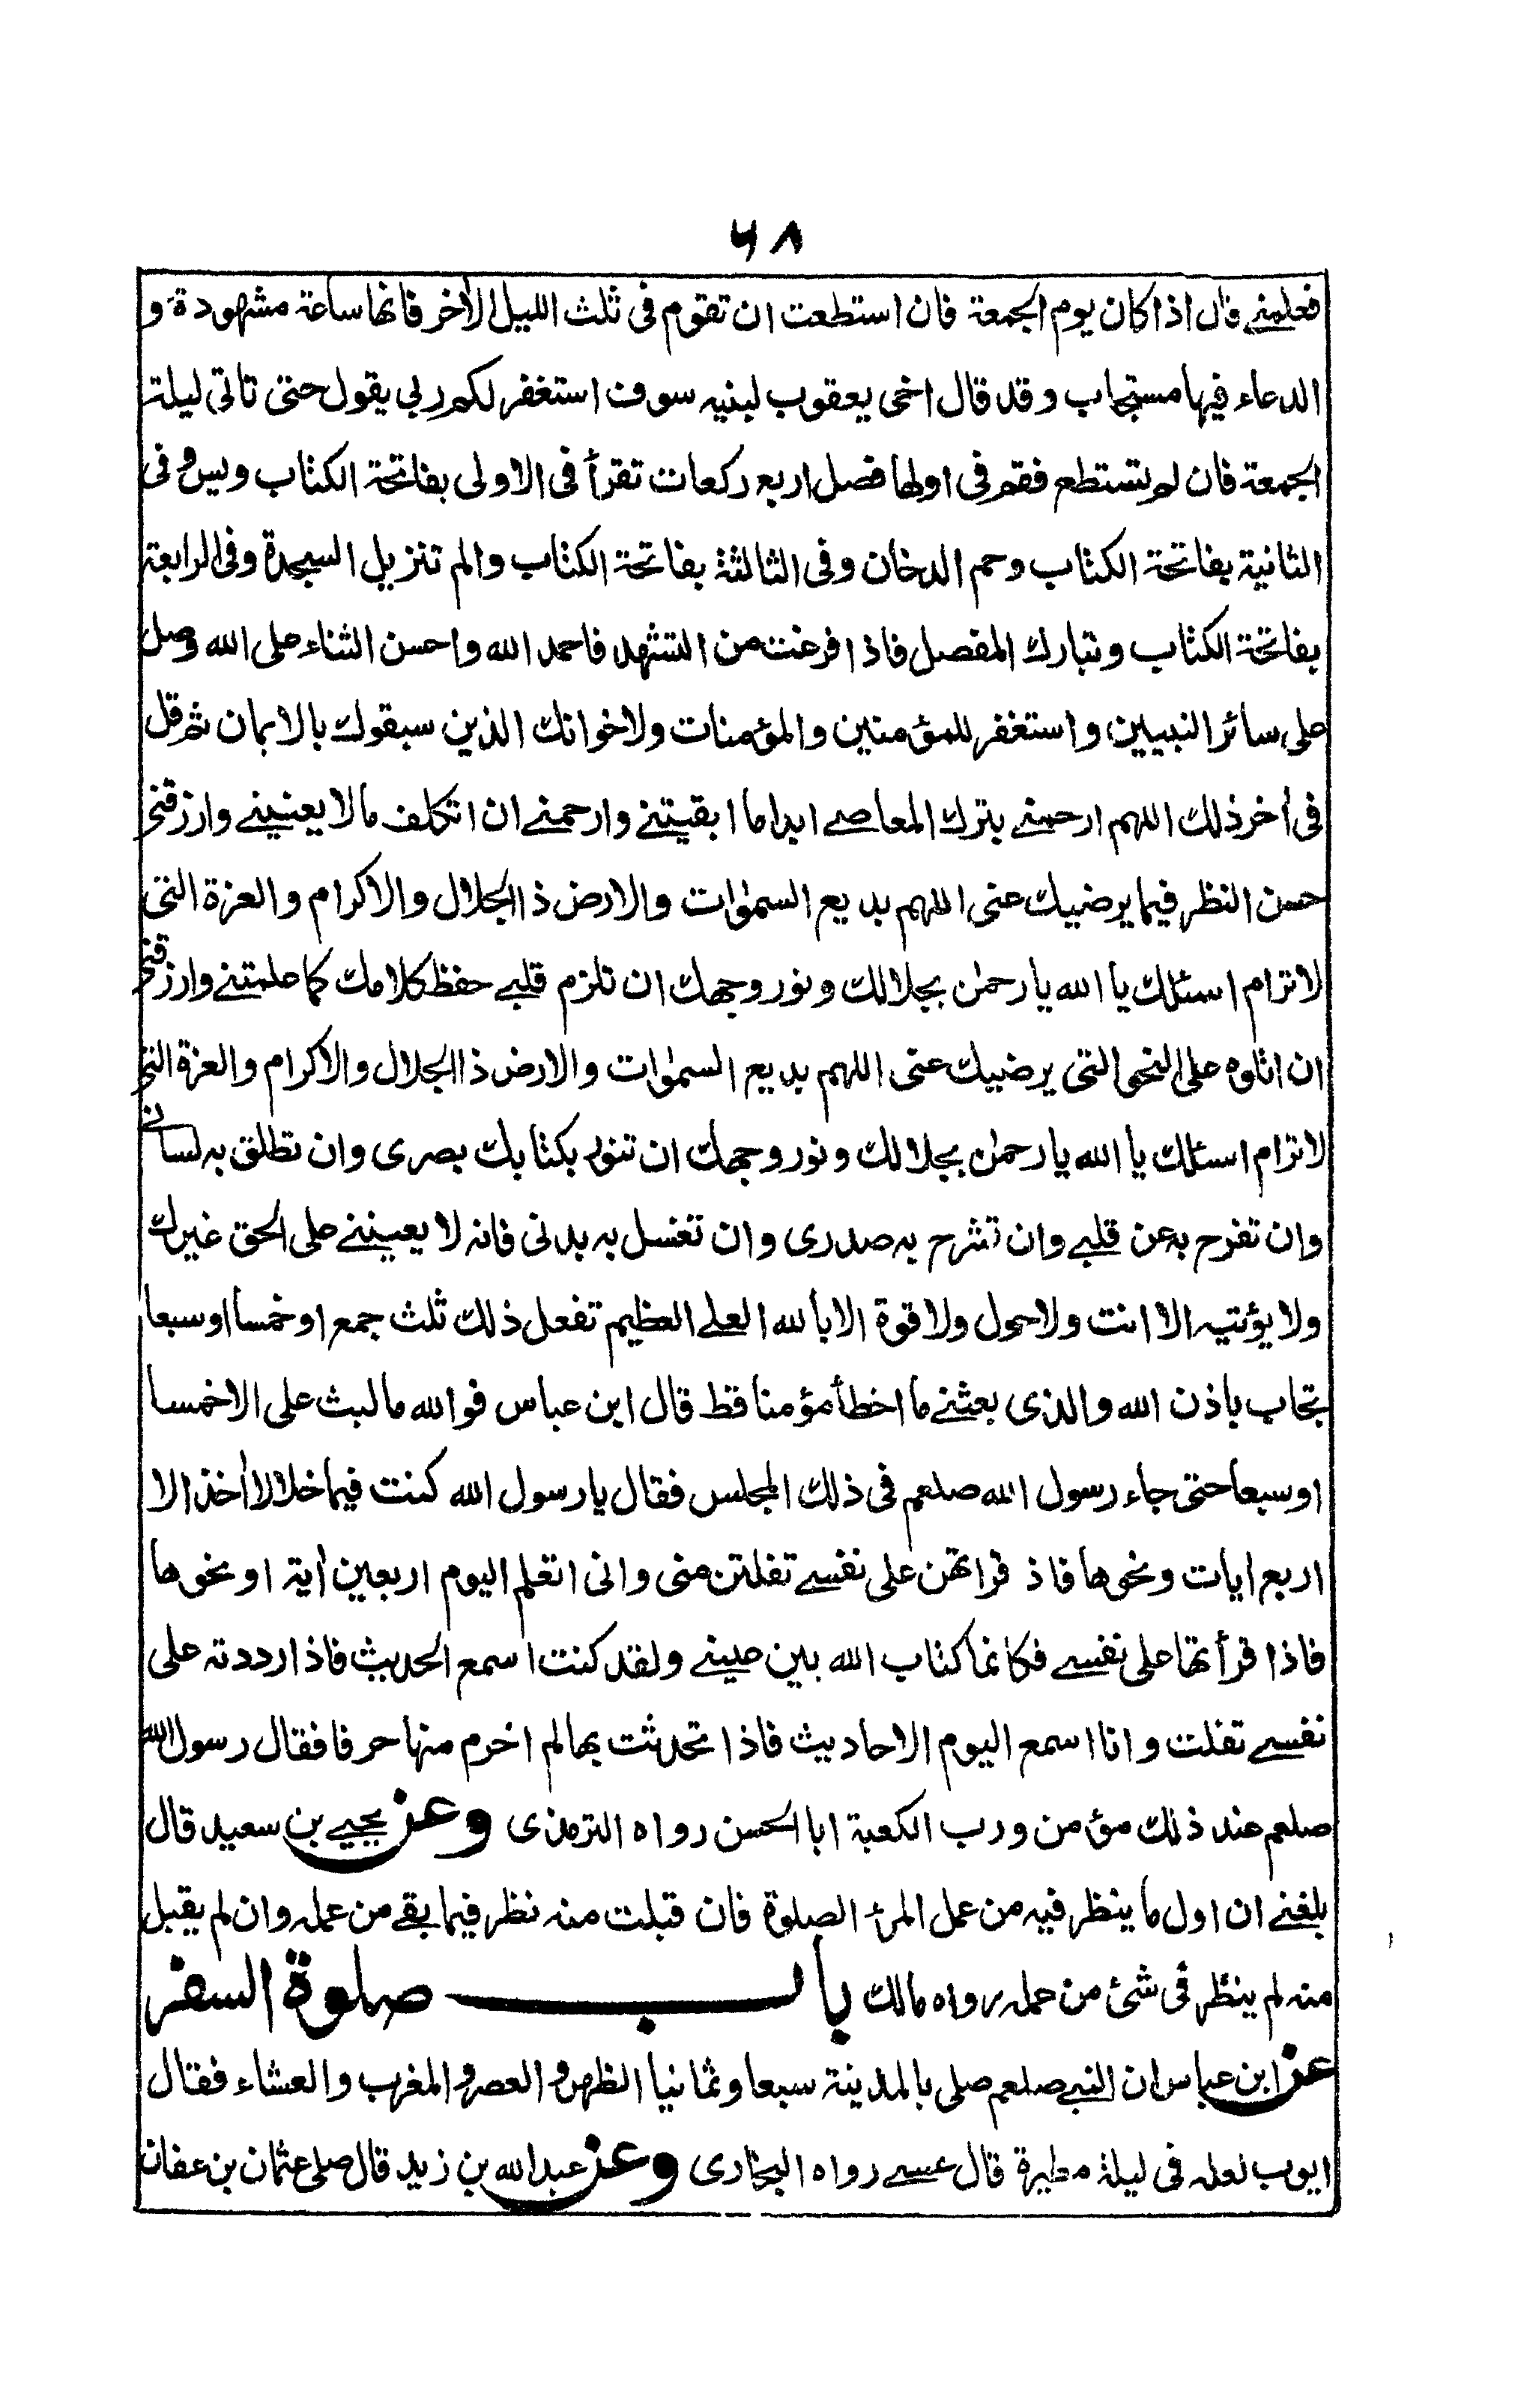 ۶۸
فعلمنے قال اذا كان يوم الجمعة فان استطعت ان تقوم فى ثلث الليل الأخر فانها ساعة مشهودة و
الدعاء فيها مستجاب وقد قال اخى يعقوب لبنيه سوف استغفر لكم ربى يقول حتى تاتى ليلة
الجمعة فان لم تستطع فقم فى اولها فصل اربع ركعات تقرأ فى الاولى بفاتحة الكتاب ويس وفى
الثانية بفاتحة الكتاب وحم الدخان وفى الثالثة بفاتحة الكتاب والم تنزيل السجدة وفى الرابعة
بفاتحة الكتاب وتبارك المفصل فاذا فرغت من التشهد فاحمد الله واحسن الثناء على الله وصل
على سائر النبيين واستغفر للمؤمنين والمؤمنات ولاخوانك الذين سبقوك بالايمان ثم قل
فى أخر ذلك اللهم ارحمنے بترك المعاصے ابدا ما ابقيتنے وارحمنے ان اتكلف ما لا يعنينے وارزقنے
حسن النظر فيما يرضيك عنى اللهم بديع السموٰات والارض ذا الجلال والاكرام والعزة التى
لا ترام اسئلك يا الله يا رحمٰن بجلالك ونور وجهك ان تلزم قلبے حفظ كلامك كما علمتنے وارزقنے
ان اتلوه على النحو التى يرضيك عنى اللهم بديع السموٰات والارض ذا الجلال والاكرام والعزة التے
لا ترام اسئلك يا الله يا رحمٰن بجلالك ونور وجهك ان تنور بكتابك بصرى وان تطلق به لسانے
وان تفرج به عن قلبے وان تشرح به صدرى وان تغسل به بدنى فانه لا يعيننے على الحق غيرك
ولا يؤتيه الا انت ولا حول ولا قوة الا بالله العلے العظيم تفعل ذلك ثلث جمع او خمسا او سبعا
تجاب باذن الله والذى بعثنے ما اخطأ مؤمنا قط قال ابن عباس فوالله ما لبث على الا خمسا
او سبعا حتى جاء رسول الله صلعم فى ذلك المجلس فقال يا رسول الله كنت فيما خلا لا أخذ الا
اربع ايات ونحوها فاذ قراتهن على نفسے تفلتن منى وانى اتعلم اليوم اربعين أية او نحوها
فاذا قرأتها على نفسے فكانما كتاب الله بين عينے ولقد كنت اسمع الحديث فاذا رددته على
نفسے تفلت وانا اسمع اليوم الاحاديث فاذا تحدثت بها لم اخرم منها حرفا فقال رسول الله
صلعم عند ذلك مؤمن ورب الكعبة ابا الحسن رواه الترمذى وعن يحيے بن سعيد قال
بلغنے ان اول ما ينظر فيه من عمل المرء الصلوة فان قبلت منه نظر فيما بقے من عمله وان لم يقبل
منه لم ينظر فى شئ من عمله رواه مالك باب صلوة السفر
عن ابن عباس ان النبے صلعم صلى بالمدينة سبعا وثمانيا الظهر و العصر و المغرب والعشاء فقال
ايوب لعله فى ليلة مطيرة قال عسے رواه البخارى وعن عبد الله بن زيد قال صلى عثمان بن عفان